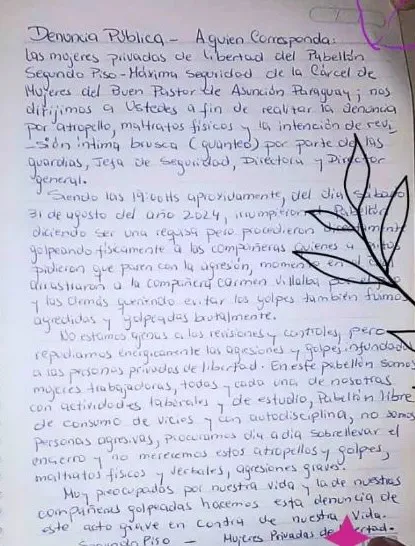 Denuncia Pública - A quien Corresponda:
Las mujeres privadas de libertad del Pabellón
Segundo Piso - Máxima Seguridad de la Cárcel de
Mujeres del Buen Pastor de Asunción Paraguay; nos
dirijimos a Ustedes a fin de realizar la denuncia
por atropello, maltratos físicos y la intención de revi_
_sión íntima brusca (guanteo) por parte de las
guardias, Jefa de Seguridad, Directora y Director
general.
Siendo las 19:00Hs aproximadamente, del día Sábado
31 de agosto del año 2024, irrumpieron Pabellón
diciendo ser una requisa pero procedieron
golpeando físicamente a las compañeras quienes a
pidieron que paren con la agresión, momento en el
arrastraron a la compañera Carmen Villalba por
y las demás queriendo evitar los golpes también fuimos
agredidas y golpeadas brutalmente.
No estamos ajenas a las revisiones y controles, pero
repudiamos enérgicamente las agresiones y golpes infundados
a las personas privadas de libertad. En este pabellón somos
mujeres trabajadoras, todas y cada una de nosotras
con actividades laborales y de estudio, Pabellón libre
de consumo de vicios y con autodisciplina, no somos
personas agresivas, procuramos día a día sobrellevar el
encierro y no merecemos estos atropellos y golpes,
maltratos físicos y verbales, agresiones graves.
Muy preocupadas por nuestra vida y la de nuestras
compañeras golpeadas hacemos esta denuncia de
este acto grave en contra de nuestra vida.
Segundo Piso - Mujeres Privadas de Libertad.